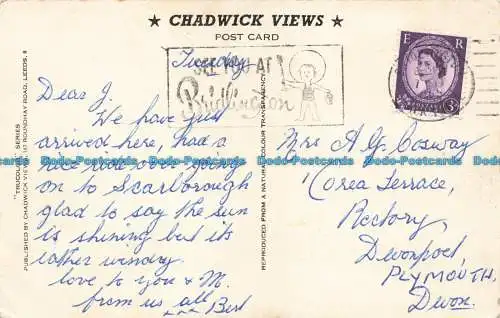 ★ CHADWICK VIEWS ★
POST CARD
Tuesday
SEE YOU AT
Bridlington
E R
3D
Dear J.
We have just
arrived here, had a
nice ride over going
on to Scarborough
glad to say the sun
is shining but its
rather windy.
love to you & M.
from us all
xxx Bert
Mrs A G Cosway
1 Corea Terrace,
Rectory
Devonport
PLYMOUTH
Devon.
"TRUCOLOUR" SERIES
PUBLISHED BY CHADWICK VIEWS, 137 ROUNDHAY ROAD, LEEDS, 8
REPRODUCED FROM A NATURAL COLOUR TRANSPARENCY
Postcards-Online Postcards-Online Postcards-Online Postcards-Online Postcards-Online